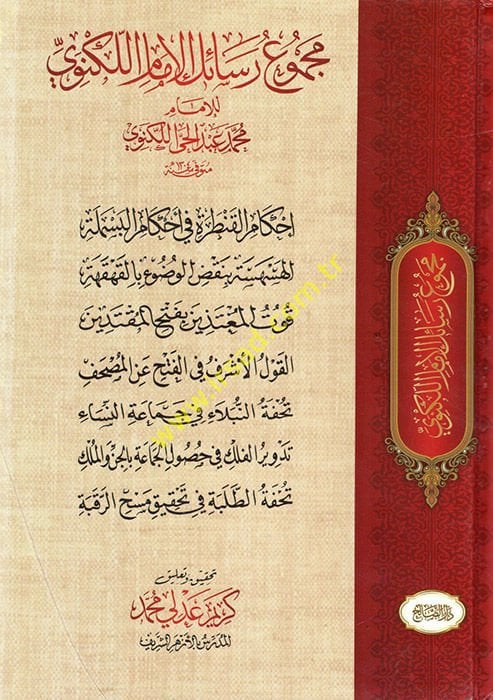 مجموع رسائل الإمام اللكنوي
للإمام
محمد عبد الحي اللكنوي
متوفى سنة ١٣٠٤
إحكام القنطرة في أحكام البسملة
الهسهسة بنقض الوضوء بالقهقهة
قوت المغتذين بفتح المقتدين
القول الأشرف في الفتح عن المصحف
تحفة النبلاء في جماعة النساء
تدوير الفلك في حصول الجماعة بالجن والملك
تحفة الطلبة في تحقيق مسح الرقبة
تحقيق وتعليق
كريم عدلي محمد
المدرس بالأزهر الشريف
مجموع رسائل الإمام اللكنوي
دار الصالح